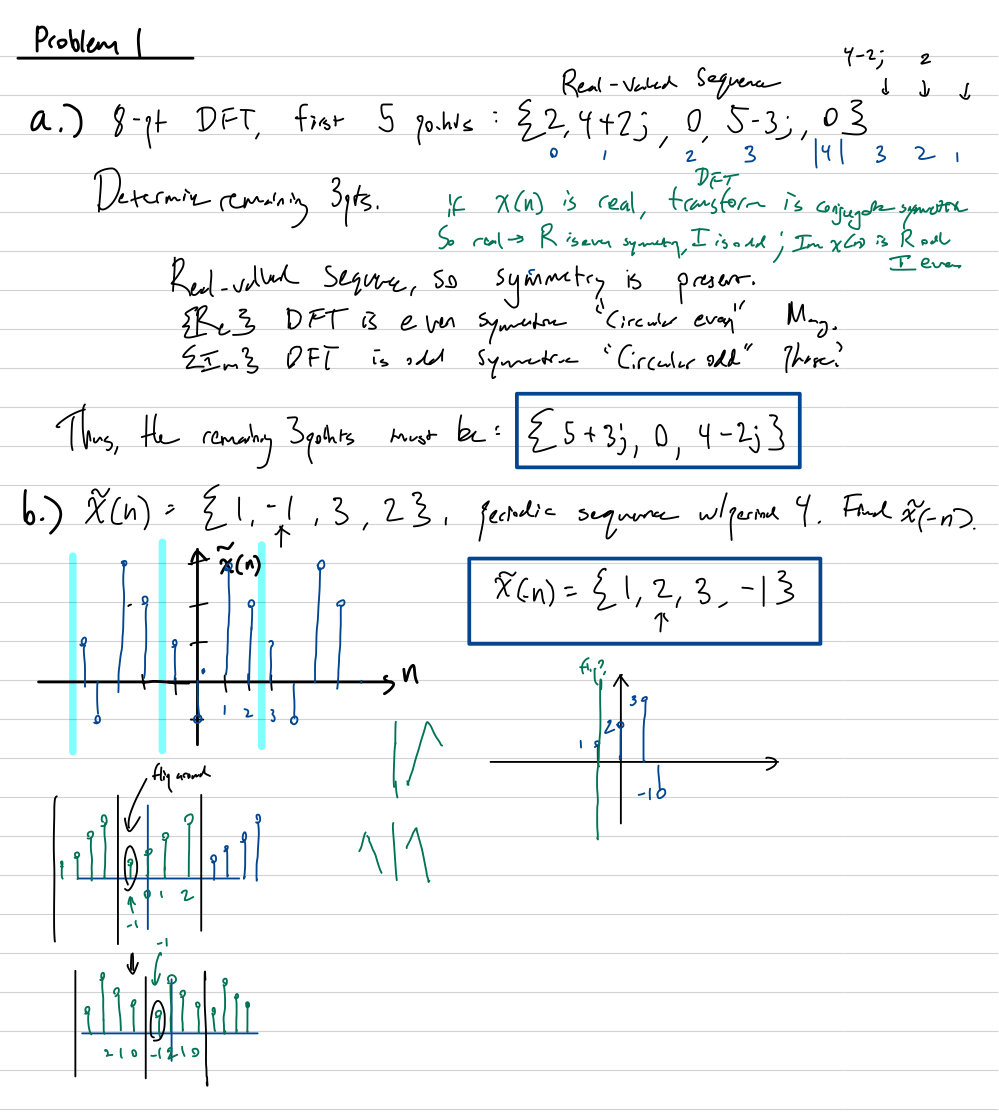 Problem 1
4-2j 2
Real-valued Sequence
a.) 8-pt DFT, first 5 points : {2, 4+2j, 0, 5-3j, 0}
0 1 2 3 |4| 3 2 1
Determine remaining 3pts.
DFT
if x(n) is real, transform is conjugate symmetric
So real → R is even symmetry, I is odd ; Im x(n) is R odd
I even
Real-valued sequence, so symmetry is present.
{Re} DFT is even symmetric "Circular even" Mag.
{Im} DFT is odd symmetric "Circular odd" Phase?
Thus, the remaining 3 points must be: {5+3j, 0, 4-2j}
b.) x̃(n) = {1, -1, 3, 2}, periodic sequence w/ period 4. Find x̃(-n).
↑
x̃(n)
x̃(-n) = {1, 2, 3, -1}
↑
n
1 2 3
flip?
3
2
1
-1
flip around
0 1 2
-1
-1
2 1 0 -1 2 1 0